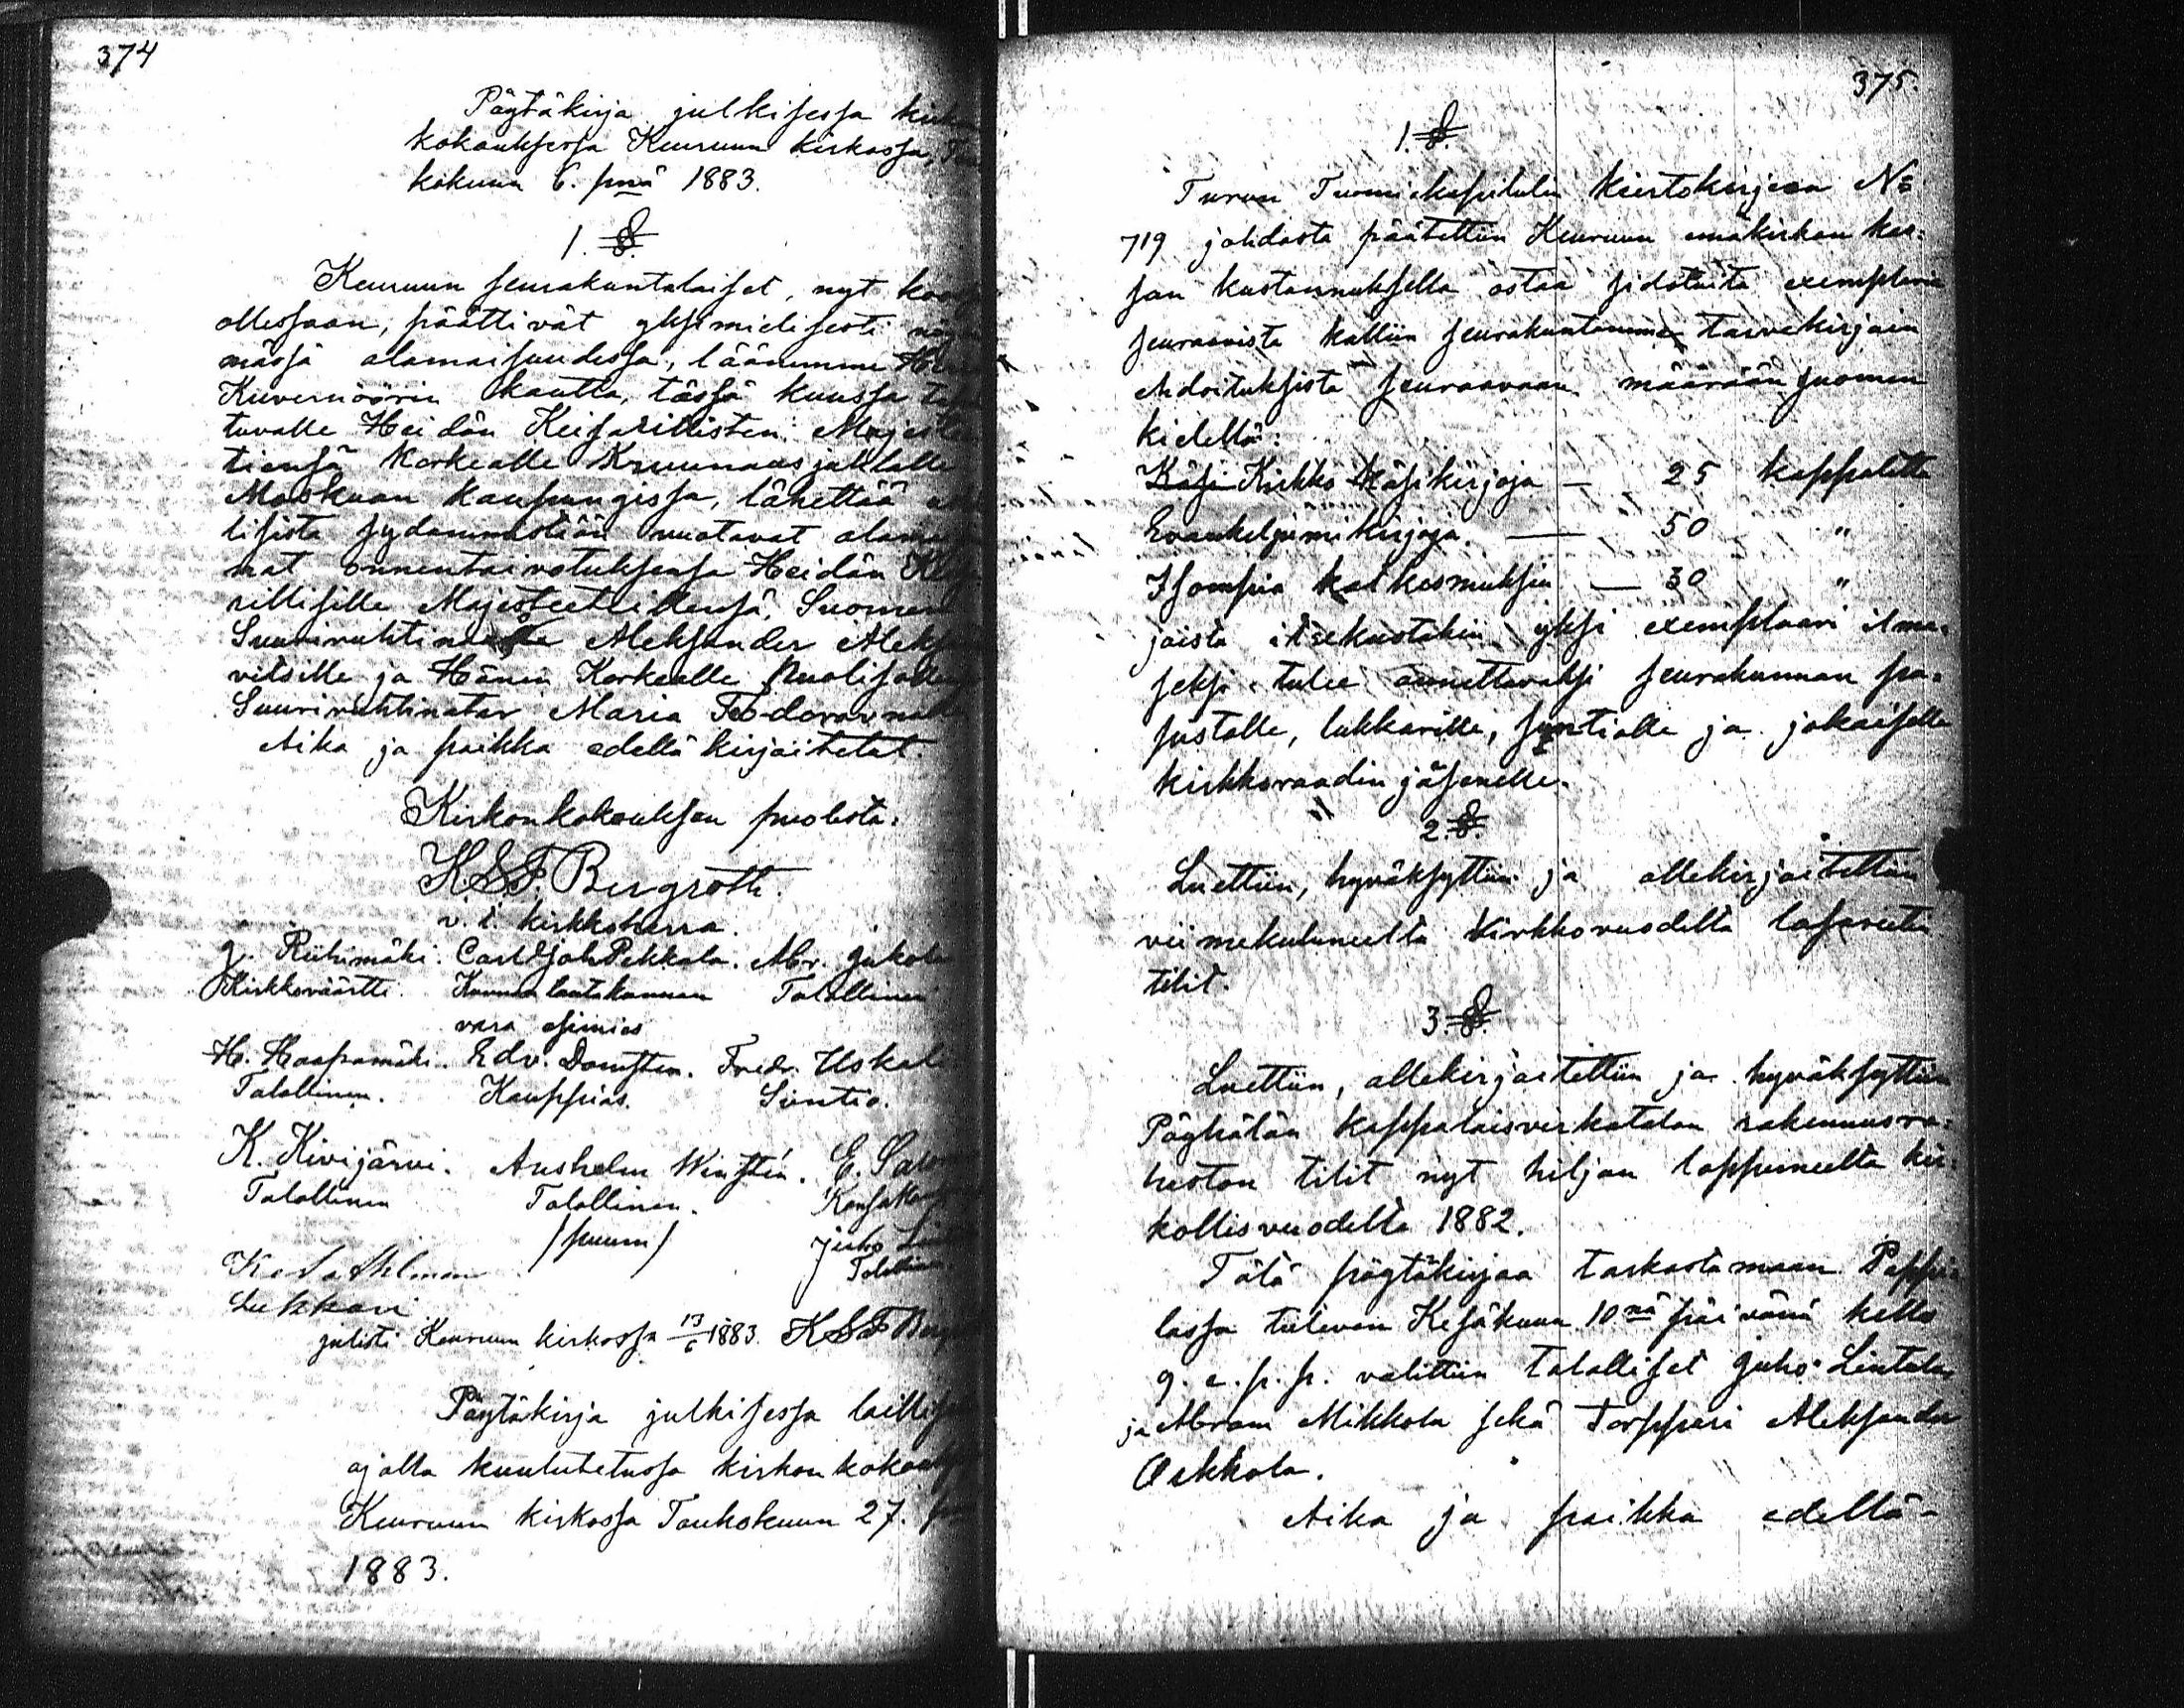 374
Pöytäkirja julkisessa
kokouksessa Keuruun kirkossa,
kokuun 6. pnä 1883.
1. §.
Keuruun seurakuntalaiset, nyt
ollessaan, päättivät yksimielisesti
mässä alamaisuudessa, läänimme
Kuvernöörin kautta, tässä kuussa
tuvalle Heidän Keisarillisten Majestee
tiensä korkealle Kruunausjuhlalle
Moskovan kaupungissa, lähettää
lisista sydämmistään vuotavat
mat onnentoivotuksensa Heidän Kei
rillisille Majesteeteillensä, Suomen
Suuriruhtinaalle Aleksander
vitsille ja Hänen Korkealle Puolisolle
Suuriruhtinatar Maria Feodorovnalle
Aika ja paikka edellä kirjoitetut.
Kirkonkokouksen puolesta:
K.S.F. Bergroth.
v. t. kirkkoherra.
J. Riihimäki. Carl Joh Pekkala. Abr. Jukola
Kirkkoväärtti. Kunnan lautakunnan Talollinen
vara esimies
H. Haapamäki. Edv. Domsten. Fredr. Uskali
Talollinen. Kauppias. Suntio.
K. Kivijärvi. Anshelm Winstén. E.
Talollinen Talollinen.
/puum/ Juho
K Ahlman Talollinen
Lukkari
julisti Keuruun kirkossa 13/6 1883. K S F
Pöytäkirja julkisessa
ajalla kuulutetussa kirkon
Keuruun kirkossa Toukokuun 27.
1883.
375.
1. §.
Turun Tuomiokapitulin kiertokirjeen No
719 johdosta päätettiin Keuruun emäkirkon kas-
san kustannuksella ostaa sidotuita exemplaria
seuraavista kalliin seurakuntamme tarvekirjain
ehdoituksista seuraavaan määrään suomen
kielellä:
Käsi Kirkko käsikirjoja — 25 kappaletta
Evankeljumikirjoja. — 50 "
Isompia katkesmuksia — 30 "
joista itsekustakin yksi exemplaari ilma-
seksi tulee annettavaksi seurakunnan pa-
pistolle, lukkarille, suntiolle ja jokaiselle
kirkkoraadin jäsenelle.
2. §.
Luettiin, hyväksyttiin ja allekirjoitettiin
viimekuluneelta kirkkovuodelta lasareitin
tilit.
3. §.
Luettiin, allekirjoitettiin ja hyväksyttiin
Pöyhölän kappalaisvirkatalon rakennusra-
haston tilit nyt hiljan loppuneelta kir-
kollisvuodelta 1882.
Tätä pöytäkirjaa tarkastamaan Pappi-
lassa tulevan Kesäkuun 10nä päivänä kello
9. e. p. p. valittiin talolliset Juho Lintula
ja Abram Mikkola sekä torppari Aleksander
Orkkola.
Aika ja paikka edellä-